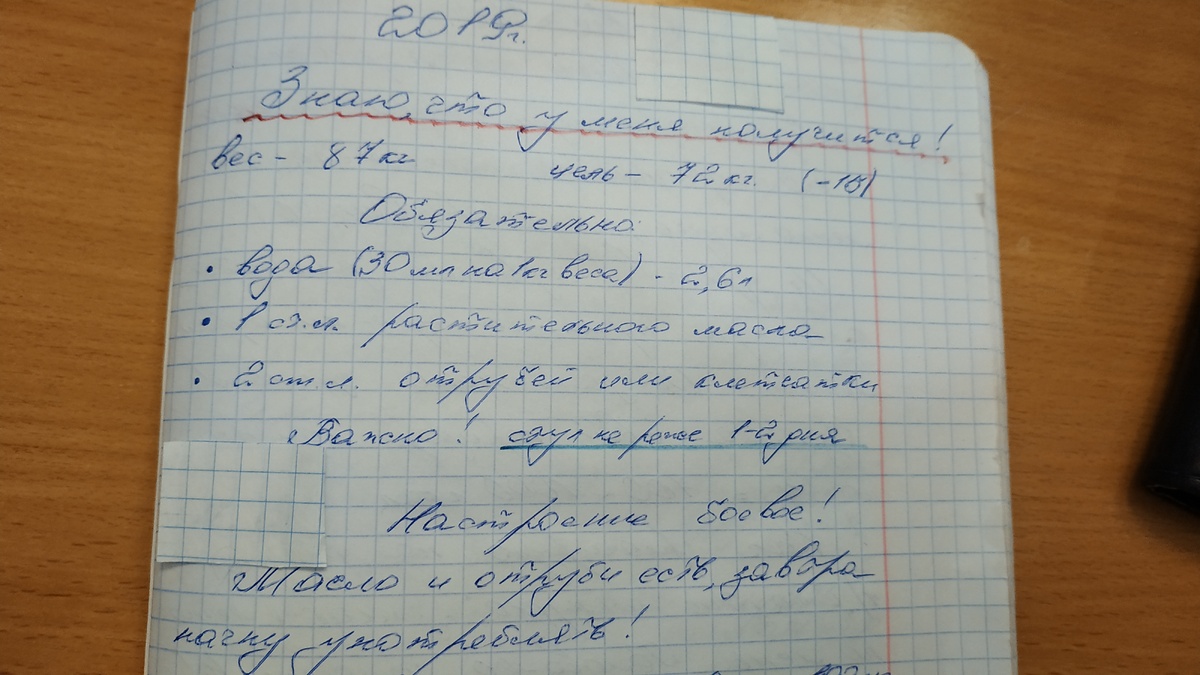 2019г.
Знаю, что у меня получится!
вес - 87 кг цель - 72 кг. (-15)
Обязательно:
• вода (30 мл на 1 кг веса) - 2,6 л
• 1 ст.л. растительного масла
• 2 ст.л. отрубей или клетчатки
Важно! стул не реже 1-2 дня
Настроение боевое!
Масло и отруби есть, завтра
начну употреблять!